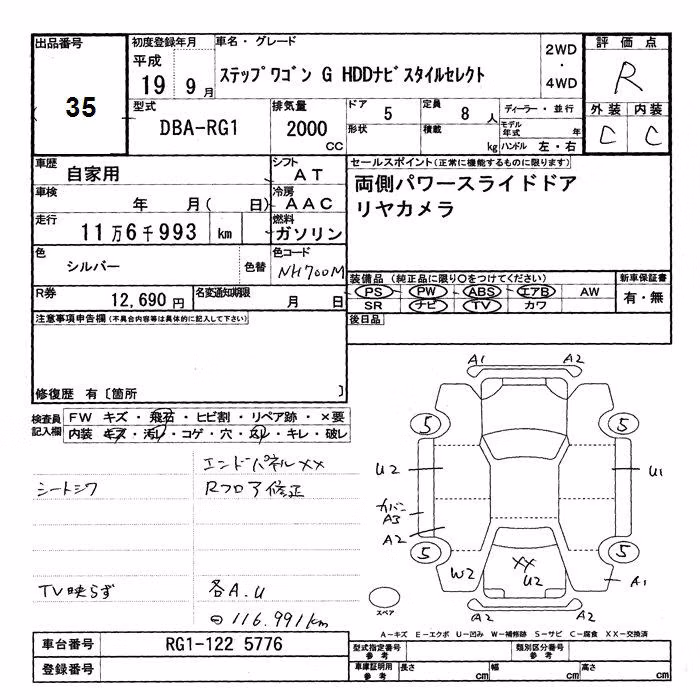 出品番号 35
初度登録年月 平成 19 9月
車名・グレード
ステップワゴン G HDDナビスタイルセレクト
2WD・4WD
評価点 R
型式 DBA-RG1
排気量 2000 CC
ドア 5
定員 8人
形状
積載 kg
ディーラー・並行
モデル年式 年
ハンドル 左・右
外装 C
内装 C
車歴 自家用
シフト AT
車検 年 月( 日)
冷房 AAC
走行 11万6千993 km
燃料 ガソリン
色 シルバー
色替
色コード NH700M
R券 12,690円
名変通知期限 月 日
セールスポイント(正常に機能するものに限ります)
両側パワースライドドア
リヤカメラ
装備品 (純正品に限り○をつけてください)
新車保証書
PS PW ABS エアB AW
有・無
SR ナビ TV カワ
後日品
注意事項申告欄(不具合内容等は具体的に記入して下さい)
修復歴 有〔箇所 〕
検査員記入欄
FW キズ・飛石・ヒビ割・リペア跡・×要
内装・キズ・汚レ・コゲ・穴・凹レ・キレ・破レ
エンドパネルXX
シートシワ
Rフロア修正
TV映らず
各A.U
⊖116.991km
A1 A2
5 5
U2 U1
カバー
A3
A2
5 5
W2
XX
U2
A1
スペア
A2 A2
A－キズ E－エクボ U－凹み W－補修跡 S－サビ C－腐食 XX－交換済
車台番号 RG1-122 5776
登録番号
型式指定番号 参考
類別区分番号 参考
車庫証明用 参考
長さ cm
幅 cm
高さ cm